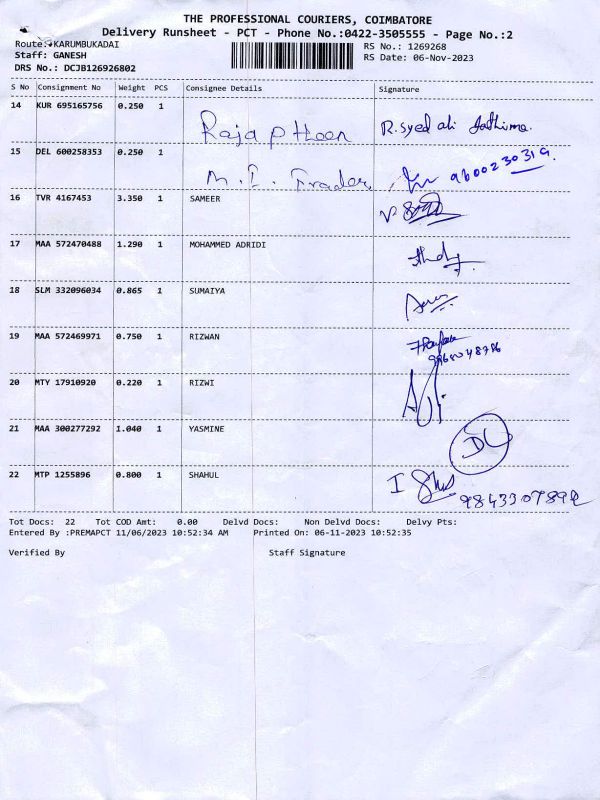 THE PROFESSIONAL COURIERS, COIMBATORE
Delivery Runsheet - PCT - Phone No.:0422-3505555 - Page No.:2
Route: KARUMBUKADAI RS No.: 1269268
Staff: GANESH RS Date: 06-Nov-2023
DRS No.: DCJB126926802
S No Consignment No Weight PCS Consignee Details Signature
14 KUR 695165756 0.250 1
Raja R. Syed ali
15 DEL 600258353 0.250 1
M. I. Trader
16 TVR 4167453 3.350 1 SAMEER
17 MAA 572470488 1.290 1 MOHAMMED ADRIDI
18 SLM 332096034 0.865 1 SUMAIYA
19 MAA 572469971 0.750 1 RIZWAN
20 MTY 17910920 0.220 1 RIZWI
21 MAA 300277292 1.040 1 YASMINE
22 MTP 1255896 0.800 1 SHAHUL
Tot Docs: 22 Tot COD Amt: 0.00 Delvd Docs: Non Delvd Docs: Delvy Pts:
Entered By :PREMAPCT 11/06/2023 10:52:34 AM Printed On: 06-11-2023 10:52:35
Verified By Staff Signature